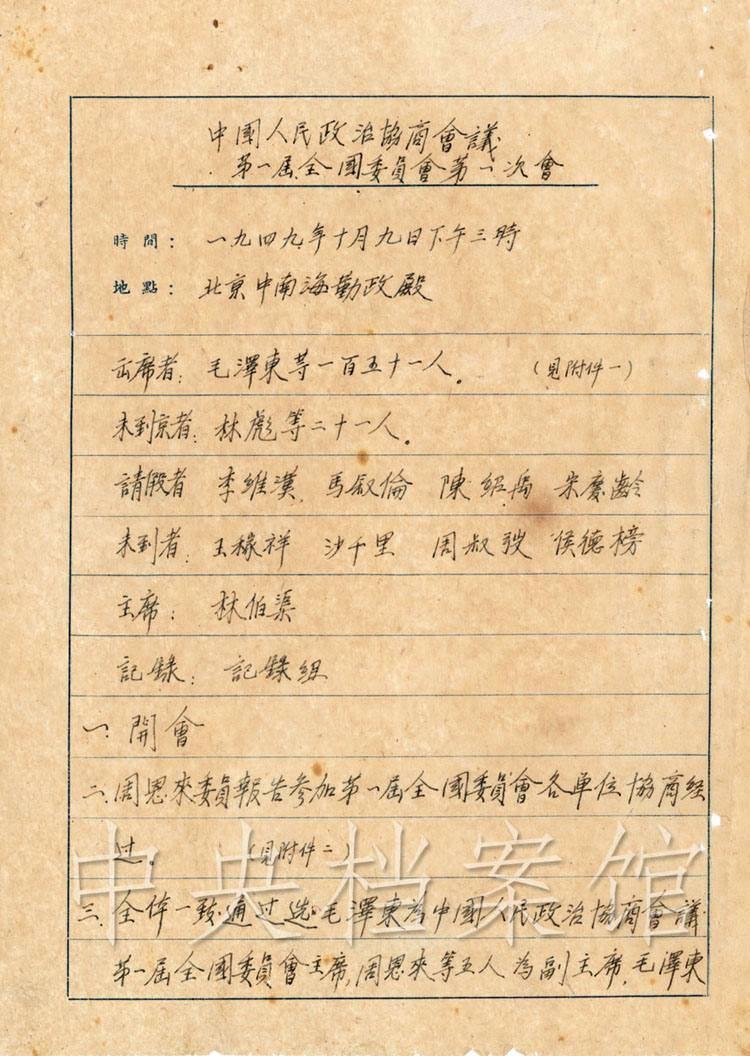 中國人民政治協商會議
第一屆全國委員會第一次會
時間：一九四九年十月九日下午三時
地點：北京中南海勤政殿
出席者：毛澤東等一百五十一人。（見附件一）
未到京者：林彪等二十一人。
請假者 李維漢 馬叙倫 陳紹禹 宋慶齡
未到者：王稼祥 沙千里 周叔弢 侯德榜
主席：林伯渠
記錄：記錄組
一、開會
二、周恩來委員報告參加第一屆全國委員會各單位協商经
过。（見附件二）
中央档案馆
三、全体一致通过选毛澤東為中國人民政治協商會議
第一屆全國委員會主席，周恩來等五人為副主席，毛澤東